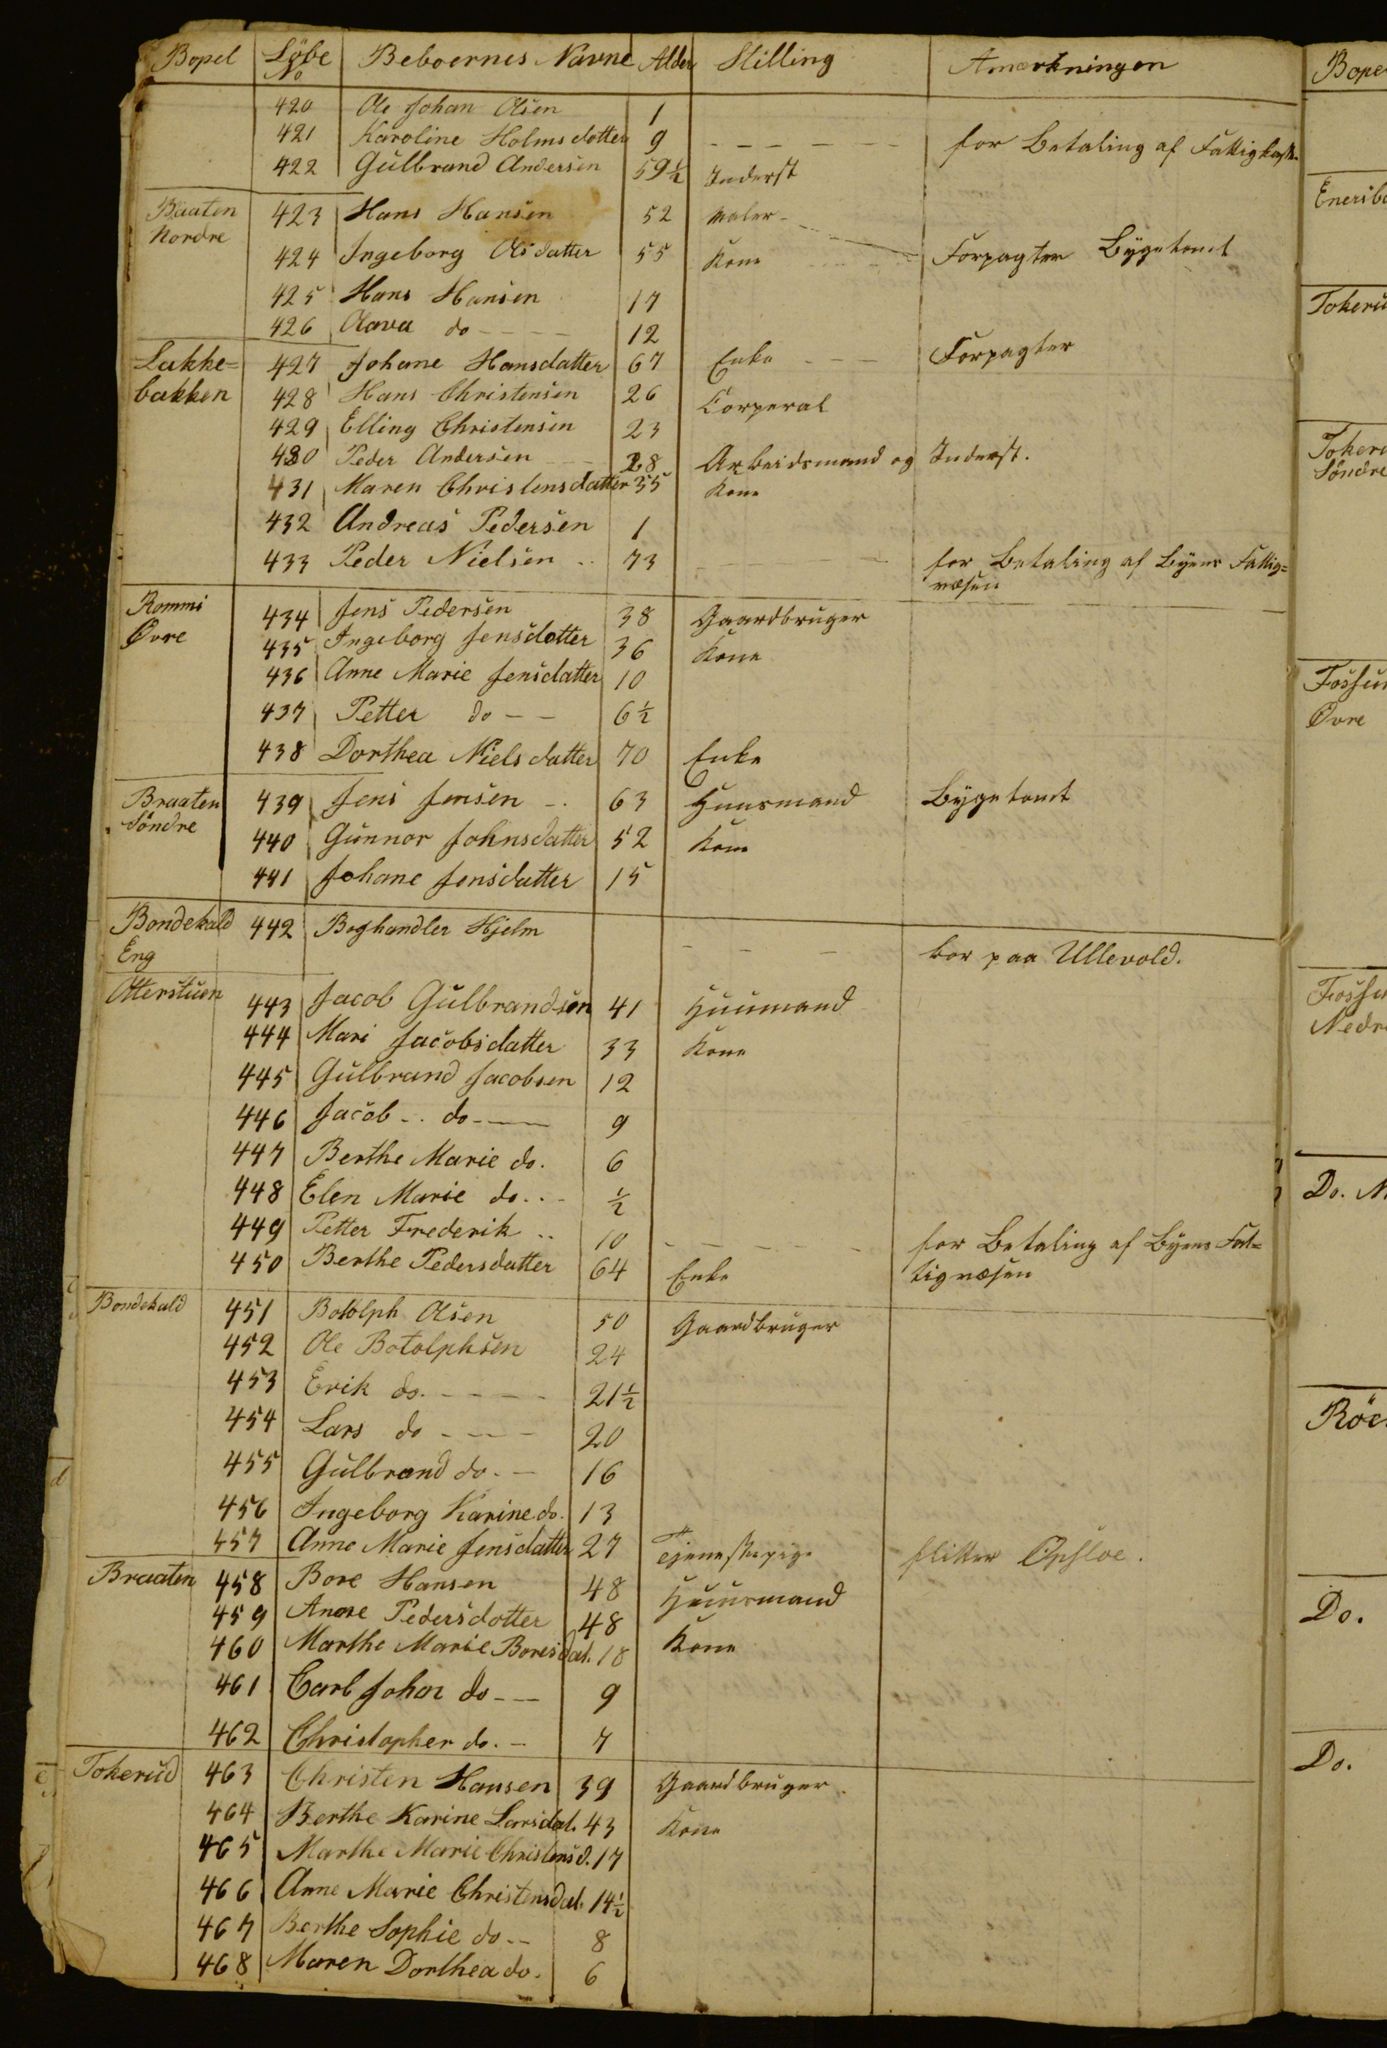 Bopel Löbe No Beboernes Navne Alder Stilling Anmærkningen
420 Ole Johan Olsen 1
421 Karoline Holmsdatter 9 - - - - - - for Betaling af Fattigkass.
422 Gulbrand Andersen 59½ Inderst
Braaten Nordre 423 Hans Hansen 52 Maler -
424 Ingeborg Olsdatter 55 Kone - - - Forpagter Bygetomt
425 Hans Hansen 17
426 Olava do - - - - 12
Lakke= bakken 427 Johane Hansdatter 67 Enke - - - Forpagter
428 Hans Christensen 26 Corperal
429 Elling Christensen 23
430 Peder Andersen - - 28 Arbeidsmand og Inderst.
431 Maren Christensdatter 35 Kone
432 Andreas Pedersen 1
433 Peder Nielsen .. 73 - - - - for Betaling af Byens Fattig=
væsen
Rommi Øvre 434 Jens Pedersen 38 Gaardbruger
435 Ingeborg Jensdatter 36 Kone
436 Anne Marie Jensdatter 10
437 Petter do - - 6½
438 Dorthea Nielsdatter 70 Enke
Braaten Söndre 439 Jens Jensen - . 63 Huusmand Bygetomt
440 Gunnor Johnsdatter 52 Kone
441 Johane Jensdatter 15
Bondekald Eng 442 Boghandler Hjelm - - - bor paa Ullevold.
Otterstuen 443 Jacob Gulbrandsen 41 Huusmand
444 Mari Jacobsdatter 33 Kone
445 Gulbrand Jacobsen 12
446 Jacob - . do - - - 9
447 Berthe Marie do. 6
448 Elen Marie do . . - ½
449 Petter Frederik .. 10 - - - - - for Betaling af Byens Fat=
450 Berthe Pedersdatter 64 Enke tigvæsen
Bondekald 451 Botolph Olsen 50 Gaardbruger
452 Ole Botolphsen 24
453 Erik do. - - - - 21½
454 Lars do - - - - 20
455 Gulbrand do. - 16
456 Ingeborg Karine do. 13
457 Anne Marie Jensdatter 27 Tjenestepige flitter Opsloe.
Braaten 458 Bore Hansen 48 Huusmand
459 Anne Pedersdatter 48 Kone
460 Marthe Marie Boresdat. 18
461 Carl Johan do - - 9
462 Christopher do. - 7
Tokerud 463 Christen Hansen 39 Gaardbruger.
464 Berthe Karine Larsdat. 43 Kone
465 Marthe Marie Christensd. 17
466 Anne Marie Christensdat. 14½
467 Berthe Sophie do - - 8
468 Maren Dorthea do. 6
Tokeru
Söndre
Fossu
Øvre
Fossu
Nedr
Do. M
Do.
Do.